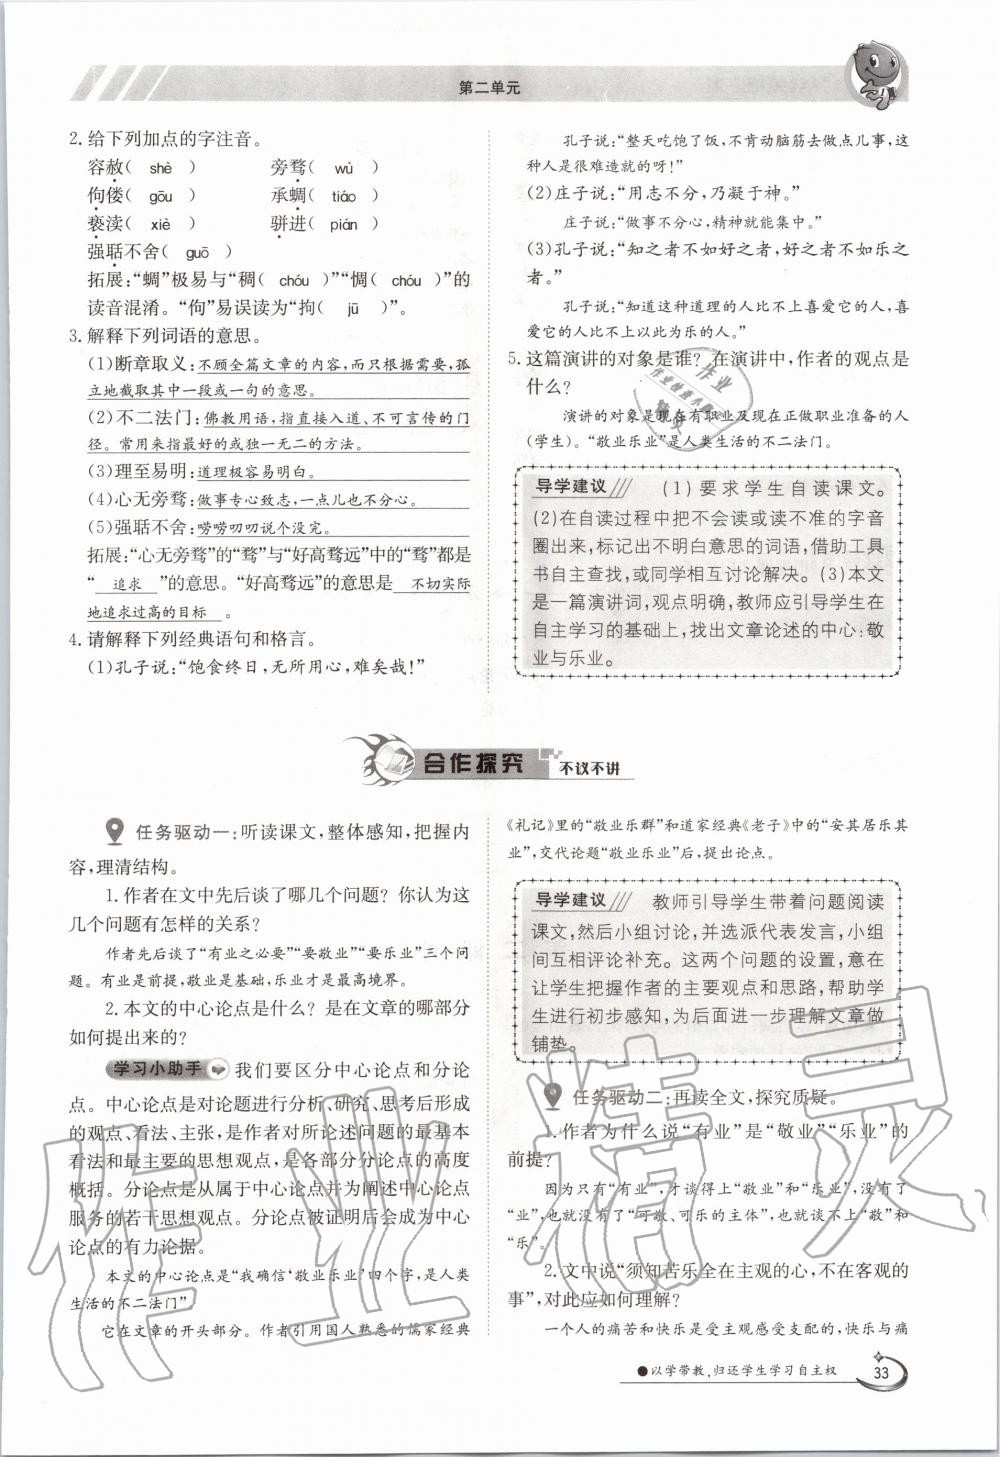 第二单元
2. 给下列加点的字注音。
容赦( shè ) 旁骛( wù )
佝偻( gōu ) 承蜩( tiáo )
亵渎( xiè ) 骈进( pián )
强聒不舍( guō )
拓展:“蜩”极易与“稠( chóu )”“惆( chóu )”的
读音混淆。“佝”易误读为“拘( jū )”。
3. 解释下列词语的意思。
(1)断章取义:不顾全篇文章的内容,而只根据需要,孤
立地截取其中一段或一句的意思。
(2)不二法门:佛教用语,指直接入道、不可言传的门
径。常用来指最好的或独一无二的方法。
(3)理至易明:道理极容易明白。
(4)心无旁骛:做事专心致志,一点儿也不分心。
(5)强聒不舍:唠唠叨叨说个没完。
拓展:“心无旁骛”的“骛”与“好高骛远”中的“骛”都是
“ 追求 ”的意思。“好高骛远”的意思是 不切实际
地追求过高的目标 。
4. 请解释下列经典语句和格言。
(1)孔子说:“饱食终日,无所用心,难矣哉!”
孔子说:“整天吃饱了饭,不肯动脑筋去做点儿事,这
种人是很难造就的呀!”
(2)庄子说:“用志不分,乃凝于神。”
庄子说:“做事不分心,精神就能集中。”
(3)孔子说:“知之者不如好之者,好之者不如乐之
者。”
孔子说:“知道这种道理的人比不上喜爱它的人,喜
爱它的人比不上以此为乐的人。”
5. 这篇演讲的对象是谁?在演讲中,作者的观点是
什么?
演讲的对象是现在有职业及现在正做职业准备的人
(学生)。“敬业乐业”是人类生活的不二法门。
导学建议 (1)要求学生自读课文。
(2)在自读过程中把不会读或读不准的字音
圈出来,标记出不明白意思的词语,借助工具
书自主查找,或同学相互讨论解决。(3)本文
是一篇演讲词,观点明确,教师应引导学生在
自主学习的基础上,找出文章论述的中心:敬
业与乐业。
合作探究 不议不讲
任务驱动一:听读课文,整体感知,把握内
容,理清结构。
1. 作者在文中先后谈了哪几个问题?你认为这
几个问题有怎样的关系?
作者先后谈了“有业之必要”“要敬业”“要乐业”三个问
题。有业是前提,敬业是基础,乐业才是最高境界。
2. 本文的中心论点是什么?是在文章的哪部分
如何提出来的?
学习小助手 我们要区分中心论点和分论
点。中心论点是对论题进行分析、研究、思考后形成
的观点、看法、主张,是作者对所论述问题的最基本
看法和最主要的思想观点,是各部分分论点的高度
概括。分论点是从属于中心论点并为阐述中心论点
服务的若干思想观点。分论点被证明后会成为中心
论点的有力论据。
本文的中心论点是“我确信‘敬业乐业’四个字,是人类
生活的不二法门”。
它在文章的开头部分。作者引用国人熟悉的儒家经典
《礼记》里的“敬业乐群”和道家经典《老子》中的“安其居乐其
业”,交代论题“敬业乐业”后,提出论点。
导学建议 教师引导学生带着问题阅读
课文,然后小组讨论,并选派代表发言,小组
间互相评论补充。这两个问题的设置,意在
让学生把握作者的主要观点和思路,帮助学
生进行初步感知,为后面进一步理解文章做
铺垫。
任务驱动二:再读全文,探究质疑。
1. 作者为什么说“有业”是“敬业”“乐业”的
前提?
因为只有“有业”,才谈得上“敬业”和“乐业”,没有了
“业”,也就没有了“可敬、可乐的主体”,也就谈不上“敬”和
“乐”。
2. 文中说“须知苦乐全在主观的心,不在客观的
事”,对此应如何理解?
一个人的痛苦和快乐是受主观感受支配的,快乐与痛
●以学带教,归还学生学习自主权 33
作业精灵